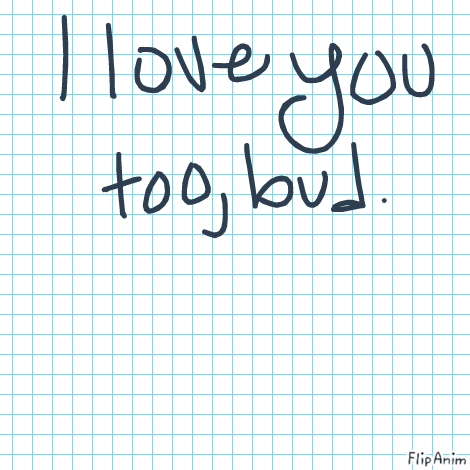 I love you
too, bud.
FlipAnim